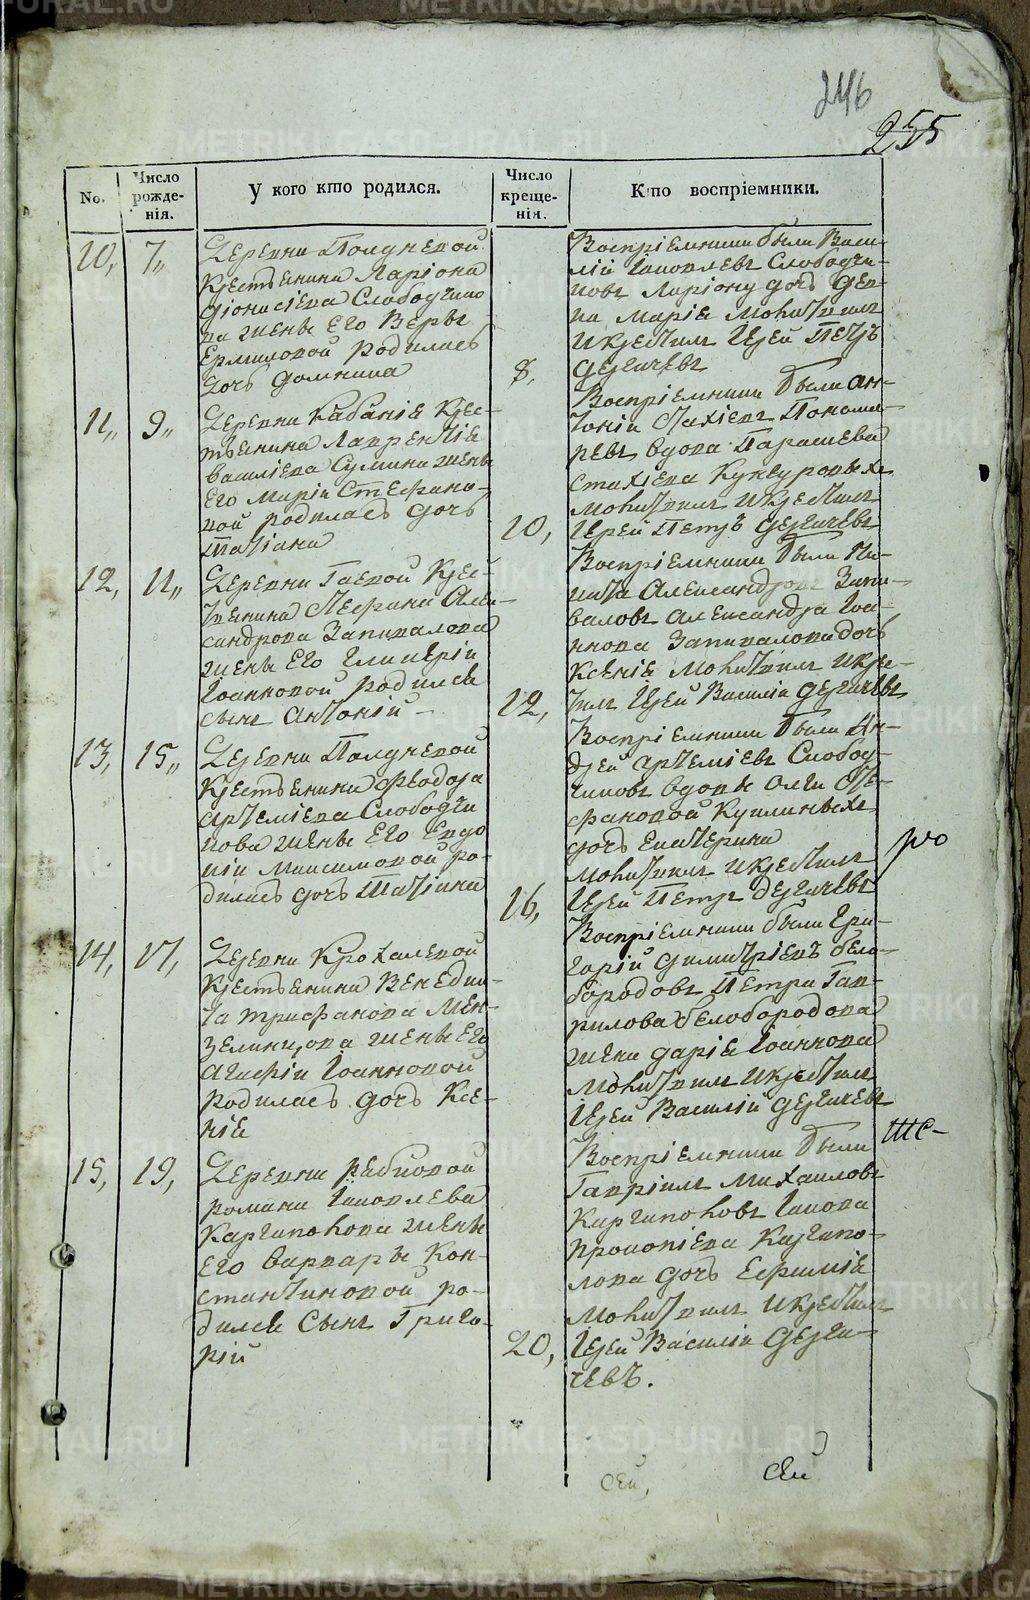 246
255
No.
Число рожденія.
У кого кто родился.
Число крещенія.
Кто воспріемники.
10, 7,,
Деревни Полдневой
Крестьянина Ларіона
Діонисіева Слободчико
ва жены его Веры
Ермиловой родилась
дочь Домника
8,
Воспріемники были Васи-
лій Іаковлевъ Слободчи-
ковъ Ларіону дочь
Марія Молитвилъ
и крестилъ Іерей Петръ
Дерягичевъ
11,, 9,,
Деревни Кабаніе Крес-
тьянина Лаврентіе
Василіева Сумина жены
Его Маріи Стефано-
вой родилась дочь
Татіана
10,
Воспріемники были Ан-
тоній Стахіевъ Понома-
ревъ вдова Парасцева
Стахіева
Молитвилъ и крестилъ
Іерей Петръ
12, 11,,
Деревни Гаевой Крес-
тьянина Стефана Алек-
сандрова Запивалова
жены Его Гликеріи
Іоанновой родился
сынъ Антоній
12,
Воспріемники были Ни-
кита Александровъ Запи-
валовъ Александра Іоа-
ннова Запивалова дочь
Ксеніе Молитвилъ и крес-
тилъ Іерей Василій
13, 15,,
Деревни Полдневой
Крестьянина Феодора
Артеміева Слободчи
кова жены Его Евдо
кіи Максимовой ро-
дилась дочь Татіана
16,
Воспріемники были Ан-
дрей Артеміевъ Слобод-
чиковъ вдовы Олги Сте-
фановой
дочь Екатерина
Молитвилъ и крестилъ
Іерей Петръ
14, 17,
Деревни Крохалевой
Крестьянина Венедик-
та Трифанова Мен-
зелинцова жены Его
Агафіи Іоанновой
родилась дочь Ксе-
ніе
Воспріемники были Гри-
горій Димитріевъ Бело-
бородовъ Петра Гав-
рилова Белобородова
жена Дарія Іоаннова
Молитвилъ и крестилъ
Іерей Василій
15, 19,
Деревни Рябковой
Романа Іаковлева
Каргаполова жены
Его Варвары Кон-
стантиновой ро-
дился Сынъ Григо-
рій
20,
Воспріемники были
Гавріилъ Михаиловъ
Каргаполовъ Іакова
Прокопіева Каргапо-
лова дочь Ефимія
Молитвилъ и крестилъ
Іерей Василій
чевъ.
Сей,
Сей
METRIKI.GASO-URAL.RU